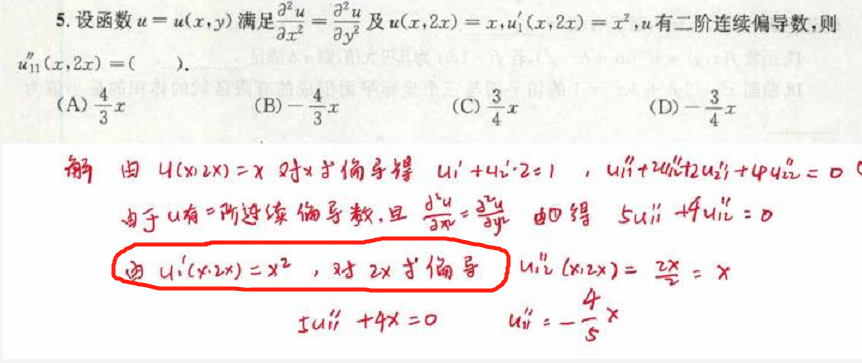 5. 设函数 u = u(x,y) 满足 ∂²u/∂x² = ∂²u/∂y² 及 u(x,2x) = x, u₁′(x,2x) = x², u 有二阶连续偏导数,则
u₁₁″(x,2x) = ( ).
(A) 4/3 x (B) − 4/3 x (C) 3/4 x (D) − 3/4 x
解 由 u(x,2x) = x 对x求偏导得 u₁′ + u₂′·2 = 1 , u₁₁″ + 2u₁₂″ + 2u₂₁″ + 4u₂₂″ = 0
由于 u有二阶连续偏导数,且 ∂²u/∂x² = ∂²u/∂y² 由①得 5u₁₁″ + 4u₁₂″ = 0
由 u₁′(x,2x) = x² , 对 2x 求偏导 u₁₂″(x,2x) = 2x/2 = x
5u₁₁″ + 4x = 0 u₁₁″ = − 4/5 x